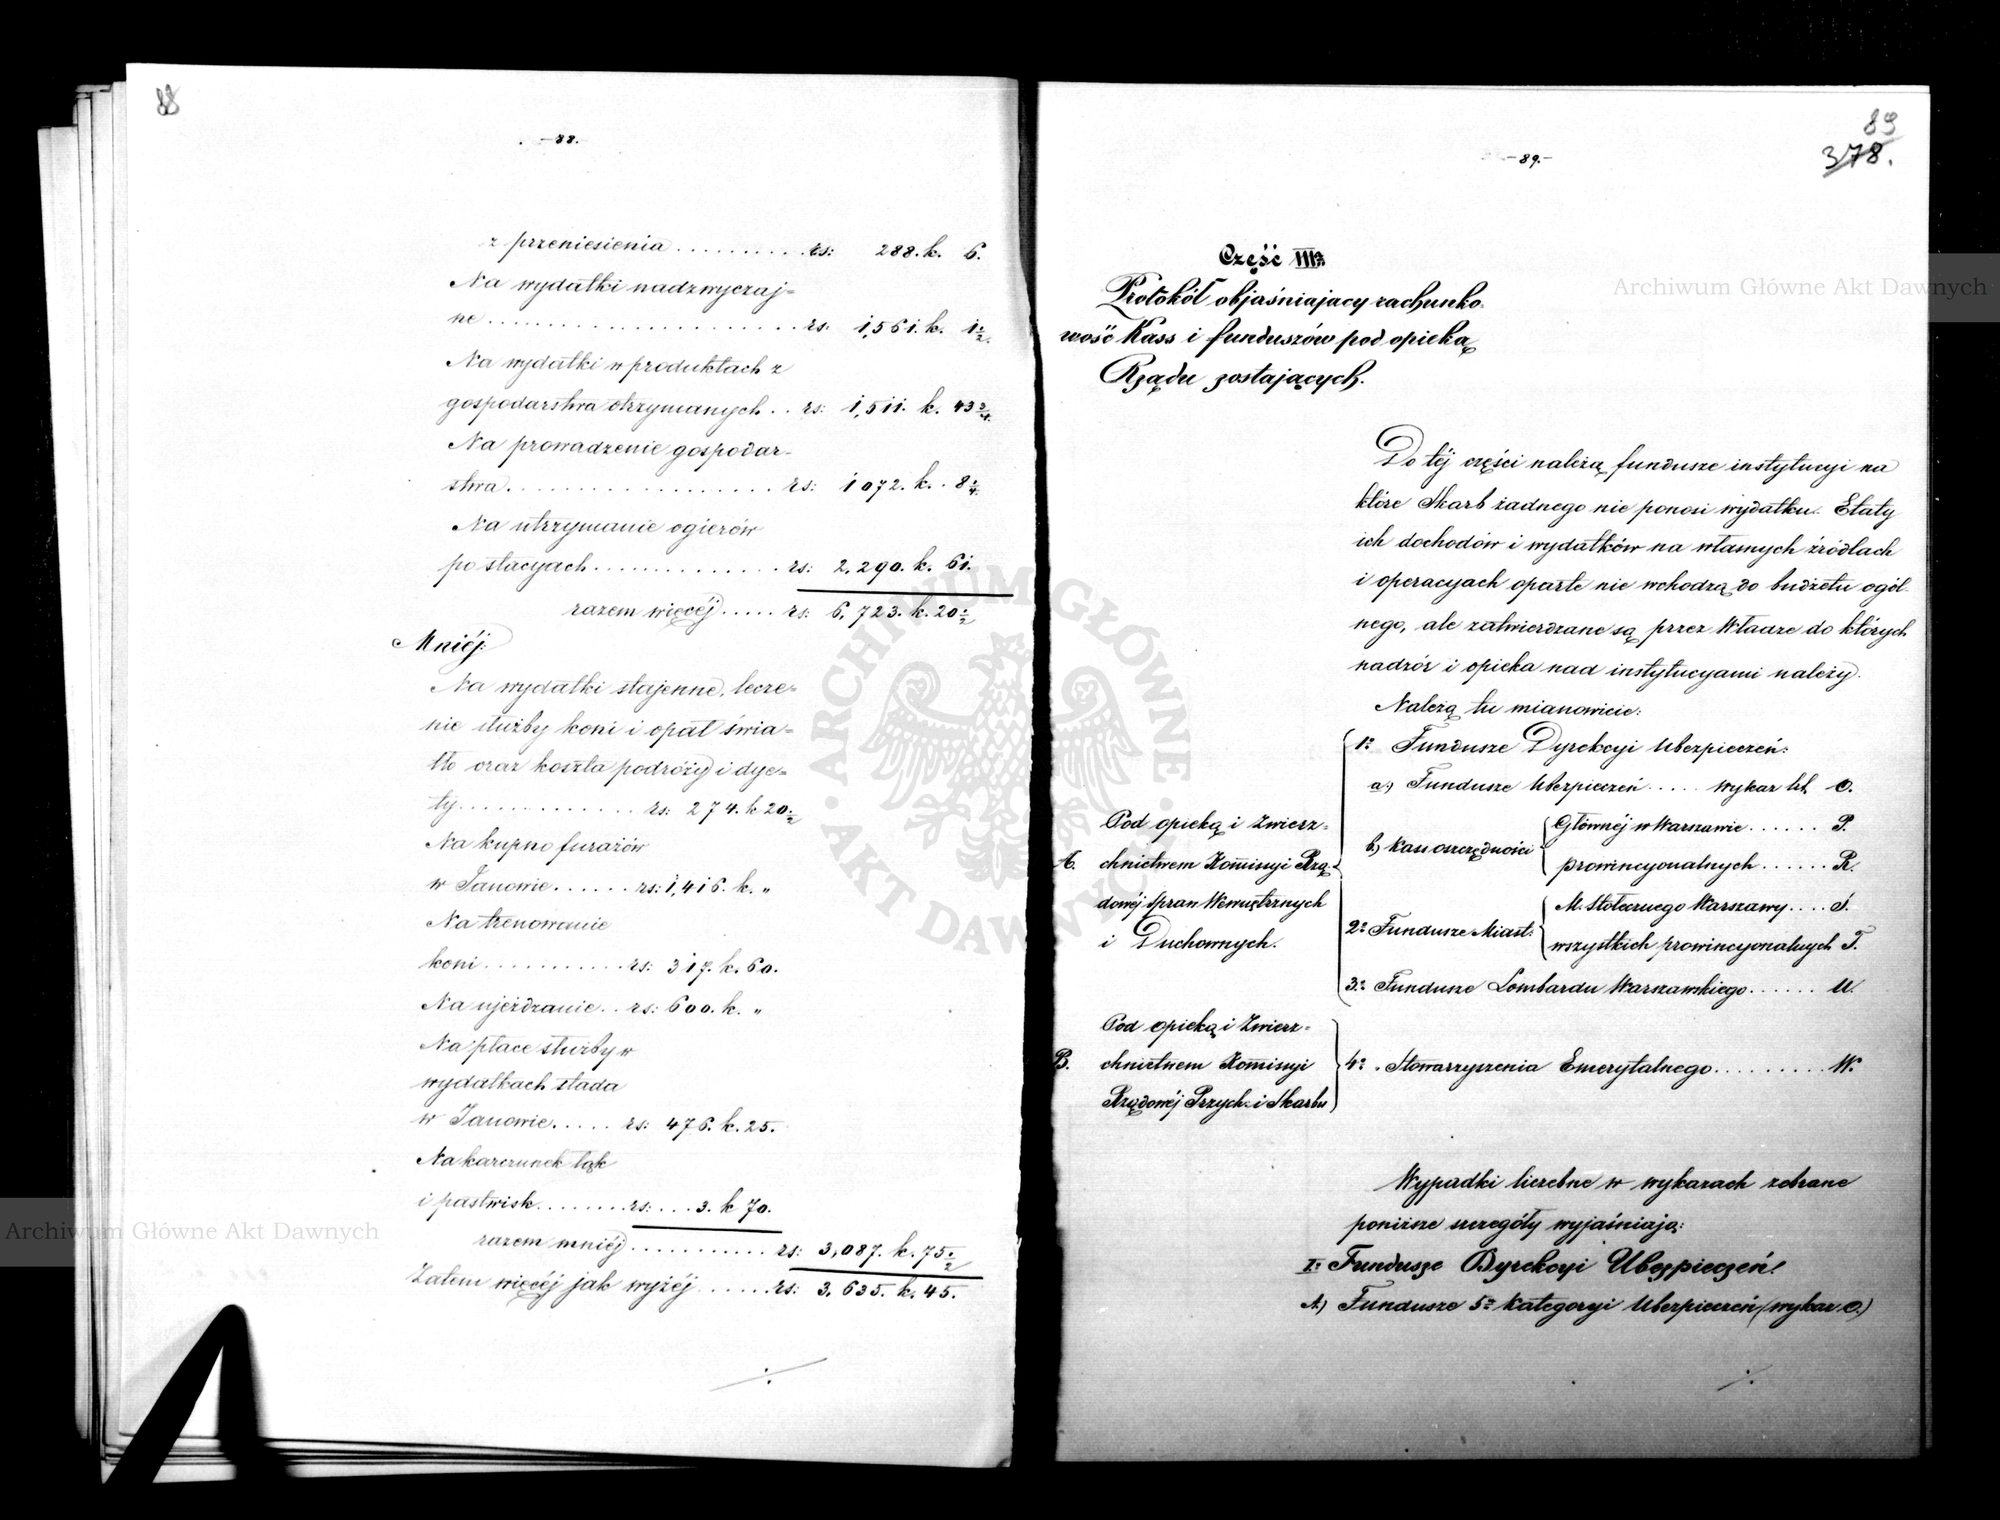 88
-88.
z przeniesienia . . . . . . . . . . rs: 288. k. 6.
Na wydatki nadzwyczaj=
ne . . . . . . . . . . . . . . . . . . . . . rs: 1,561. k. 1 1/2.
Na wydatki w produktach z
gospodarstwa otrzymanych . . rs: 1,511. k. 43 3/4.
Na prowadzenie gospodar-
stwa . . . . . . . . . . . . . . . . . . . rs: 1072. k. 8 1/4.
Na utrzymanie ogierów
po stacyach . . . . . . . . . . . . . . rs: 2,290. k. 61.
razem więcéj . . . . . rs: 6,723. k. 20 1/2
Mniéj:
Na wydatki stajenne, lecze=
nie służby koni i opał świa=
tło oraz koszta podróży i dye=
ty . . . . . . . . . . . . . . rs: 274. k 20 1/2
Na kupno furażów
w Janowie . . . . . . rs: 1,416. k. „
Na trenowanie
koni . . . . . . . . . . . . rs: 317. k. 60.
Na ujeżdżanie . . rs: 600. k. „
Na płace służby w
wydatkach stada
w Janowie . . . . . rs: 476. k. 25.
Na karczunek łąk
i pastwisk . . . . . . . . rs: . . . 3. k 70.
razem mniéj . . . . . . . . . . . . rs: 3,087. k. 75 1/2
Zatem więcéj jak wyżéj . . . . . . . rs: 3,635. k. 45.
89
378.
-89.-
Część III^a
Protokół objaśniający rachunko-
wość Kass i funduszów pod opieką
Rządu zostających.
Do téj części należą fundusze instytucyi na
które Skarb żadnego nie ponosi wydatku. Etaty
ich dochodów i wydatków na własnych źródłach
i operacyach oparte nie wchodzą do budżetu ogól-
nego, ale zatwierdzane są przez Władze do których
nadzór i opieka nad instytucyami należy.
Należą tu mianowicie:
1° Fundusze Dyrekcyi Ubezpieczeń:
a) Fundusze Ubezpieczeń . . . . . wykaz lit. O.
Pod opieką i Zwierz-
b) Kass oszczędności
Głównéj w Warszawie . . . . . . P.
A. chnictwem Kommissyi Rzą-
prowincyonalnych . . . . . . R.
dowéj Spraw Wewnętrznych
M. Stołecznego Warszawy . . . . S.
i Duchownych.
2° Fundusze Miast:
wszystkich prowincyonalnych T.
3° Fundusze Lombardu Warszawskiego . . . . . . U.
Pod opieką i Zwierz-
B. chnictwem Kommissyi
4° Stowarzyszenia Emerytalnego . . . . . . . . . . W.
Rządowéj Przych: i Skarbu
Wypadki liczebne w wykazach zebrane
poniższe szczegóły wyjaśniają:
I° Fundusze Dyrekcyi Ubezpieczeń.
A) Fundusze 5^u kategoryi Ubezpieczeń (wykaz O.)
Archiwum Główne Akt Dawnych
Archiwum Główne Akt Dawnych
ARCHIWUM GŁÓWNE AKT DAWNYCH